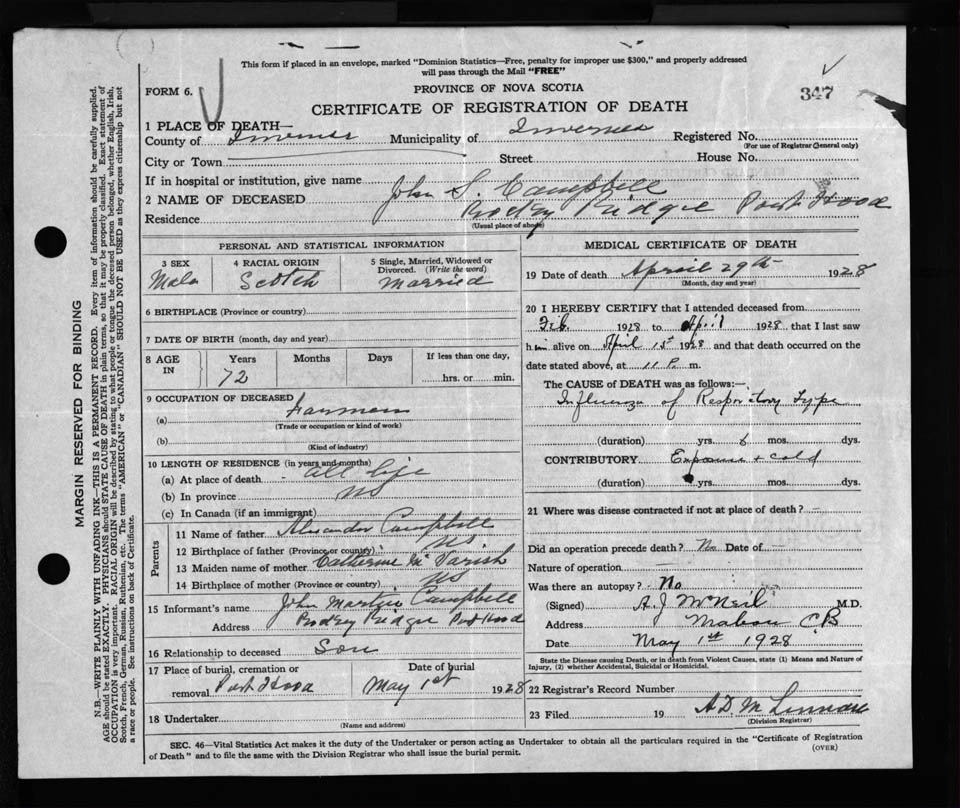 This form if placed in an envelope, marked "Dominion Statistics—Free, penalty for improper use $300," and properly addressed
will pass through the Mail "FREE"
FORM 6.
PROVINCE OF NOVA SCOTIA
347
CERTIFICATE OF REGISTRATION OF DEATH
1 PLACE OF DEATH—
County of Inverness Municipality of Inverness Registered No.
(For use of Registrar General only)
City or Town Street House No.
If in hospital or institution, give name
2 NAME OF DECEASED John S. Campbell
Residence Ridge Port Hood
(Usual place of abode)
PERSONAL AND STATISTICAL INFORMATION
3 SEX 4 RACIAL ORIGIN 5 Single, Married, Widowed or
Divorced. (Write the word)
Male Scotch Married
6 BIRTHPLACE (Province or country)
7 DATE OF BIRTH (month, day and year)
8 AGE IN Years Months Days If less than one day,
72 hrs. or min.
9 OCCUPATION OF DECEASED
(a) Farmer
(Trade or occupation or kind of work)
(b)
(Kind of industry)
10 LENGTH OF RESIDENCE (in years and months)
(a) At place of death all life
(b) In province NS
(c) In Canada (if an immigrant)
Parents
11 Name of father Alexander Campbell
12 Birthplace of father (Province or country) NS
13 Maiden name of mother Catherine Mc
14 Birthplace of mother (Province or country) NS
15 Informant's name John Campbell
Address Ridge Port Hood
16 Relationship to deceased Son
17 Place of burial, cremation or Date of burial
removal Port Hood May 1st 1928
18 Undertaker
(Name and address)
MEDICAL CERTIFICATE OF DEATH
19 Date of death April 29th 1928
(Month, day and year)
20 I HEREBY CERTIFY that I attended deceased from
Feb. 1928 to April 1928 that I last saw
him alive on April 15th 1928 and that death occurred on the
date stated above, at 11 P. m.
The CAUSE of DEATH was as follows:—
Influenza of Respiratory Type
(duration) yrs. 6 mos. dys.
CONTRIBUTORY Exposure + cold
(duration) yrs. mos. dys.
21 Where was disease contracted if not at place of death? –
Did an operation precede death? No Date of –
Nature of operation –
Was there an autopsy? No
(Signed) A. J McNeil M.D.
Address Mabou CB
Date May 1st 1928
State the Disease causing Death, or in death from Violent Causes, state (1) Means and Nature of
Injury, (2) whether Accidental, Suicidal or Homicidal.
22 Registrar's Record Number
23 Filed 19 A D
(Division Registrar)
SEC. 46—Vital Statistics Act makes it the duty of the Undertaker or person acting as Undertaker to obtain all the particulars required in the "Certificate of Registration
of Death" and to file the same with the Division Registrar who shall issue the burial permit.
(OVER)
MARGIN RESERVED FOR BINDING
N.B.—WRITE PLAINLY WITH UNFADING INK—THIS IS A PERMANENT RECORD. Every item of information should be carefully supplied.
AGE should be stated EXACTLY. PHYSICIANS should STATE CAUSE OF DEATH in plain terms, so that it may be properly classified. Exact statement of
OCCUPATION is very important. RACIAL ORIGIN will be described by stating to what people or tongue the deceased person belonged, whether English, Irish,
Scotch, French, German, Russian, Ruthenian, etc. The terms "AMERICAN" or "CANADIAN" SHOULD NOT BE USED as they express citizenship but not
a race or people. See instructions on back of Certificate.